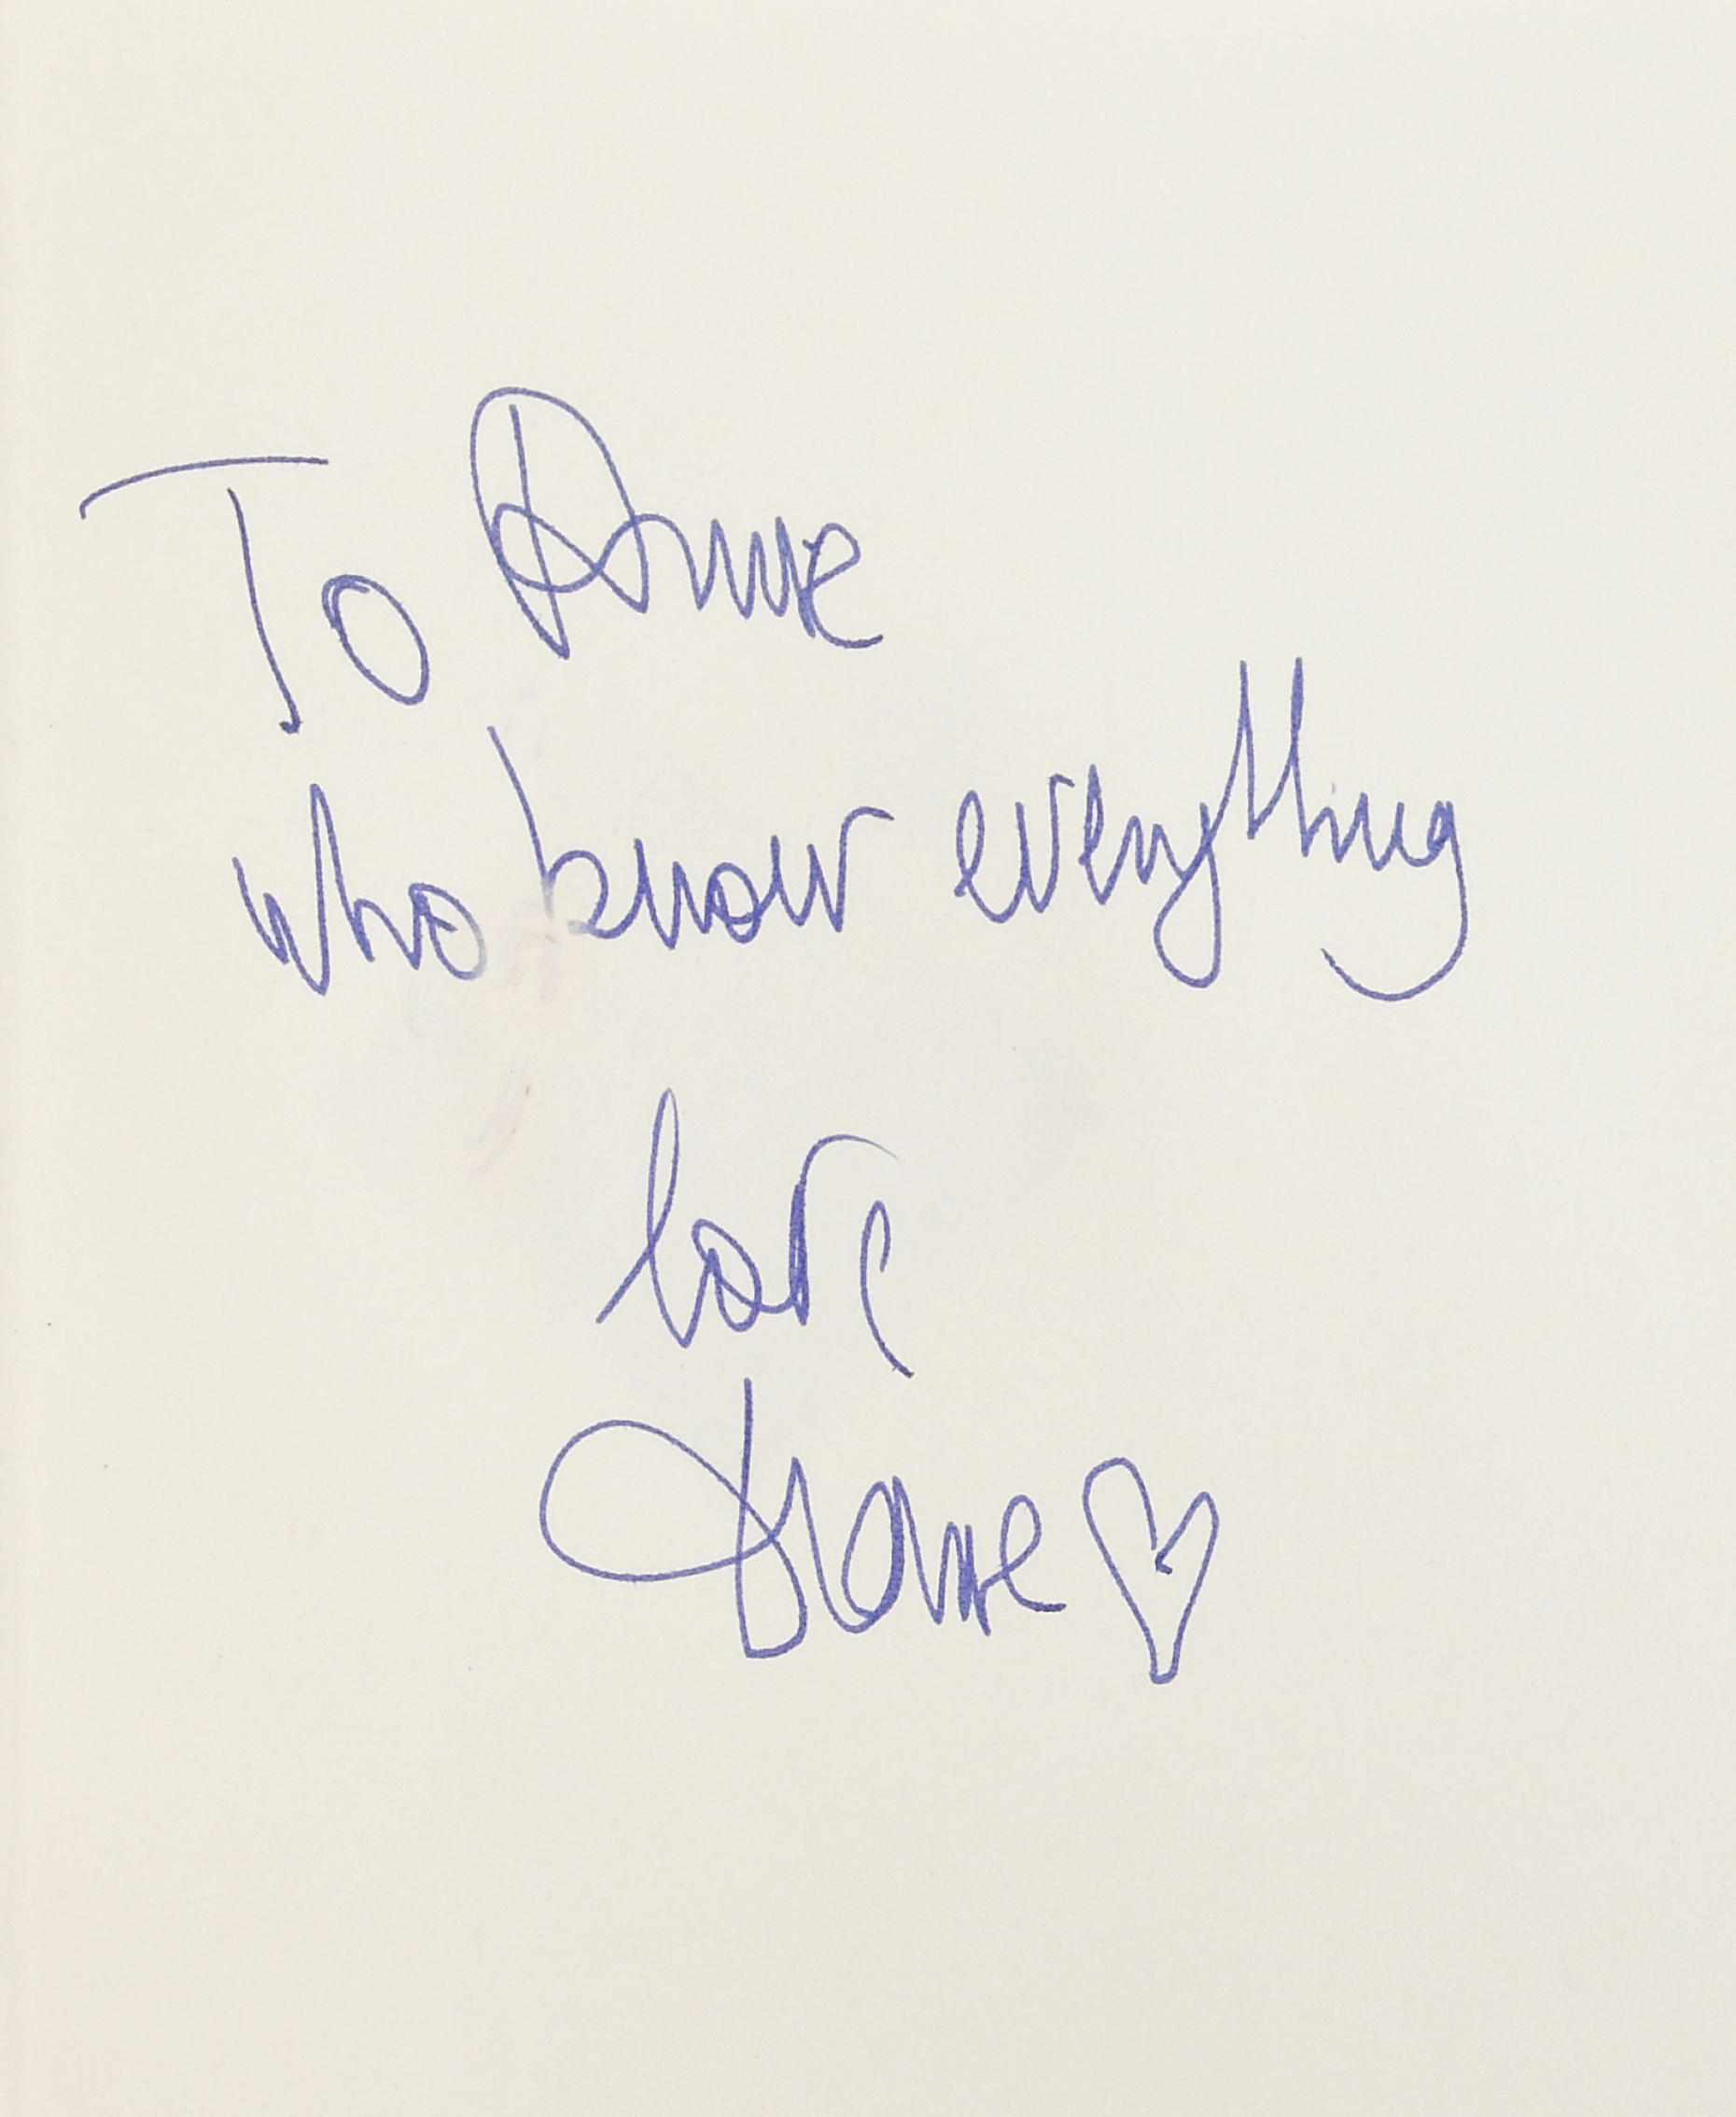 To Anne
who know everything
love
Diane